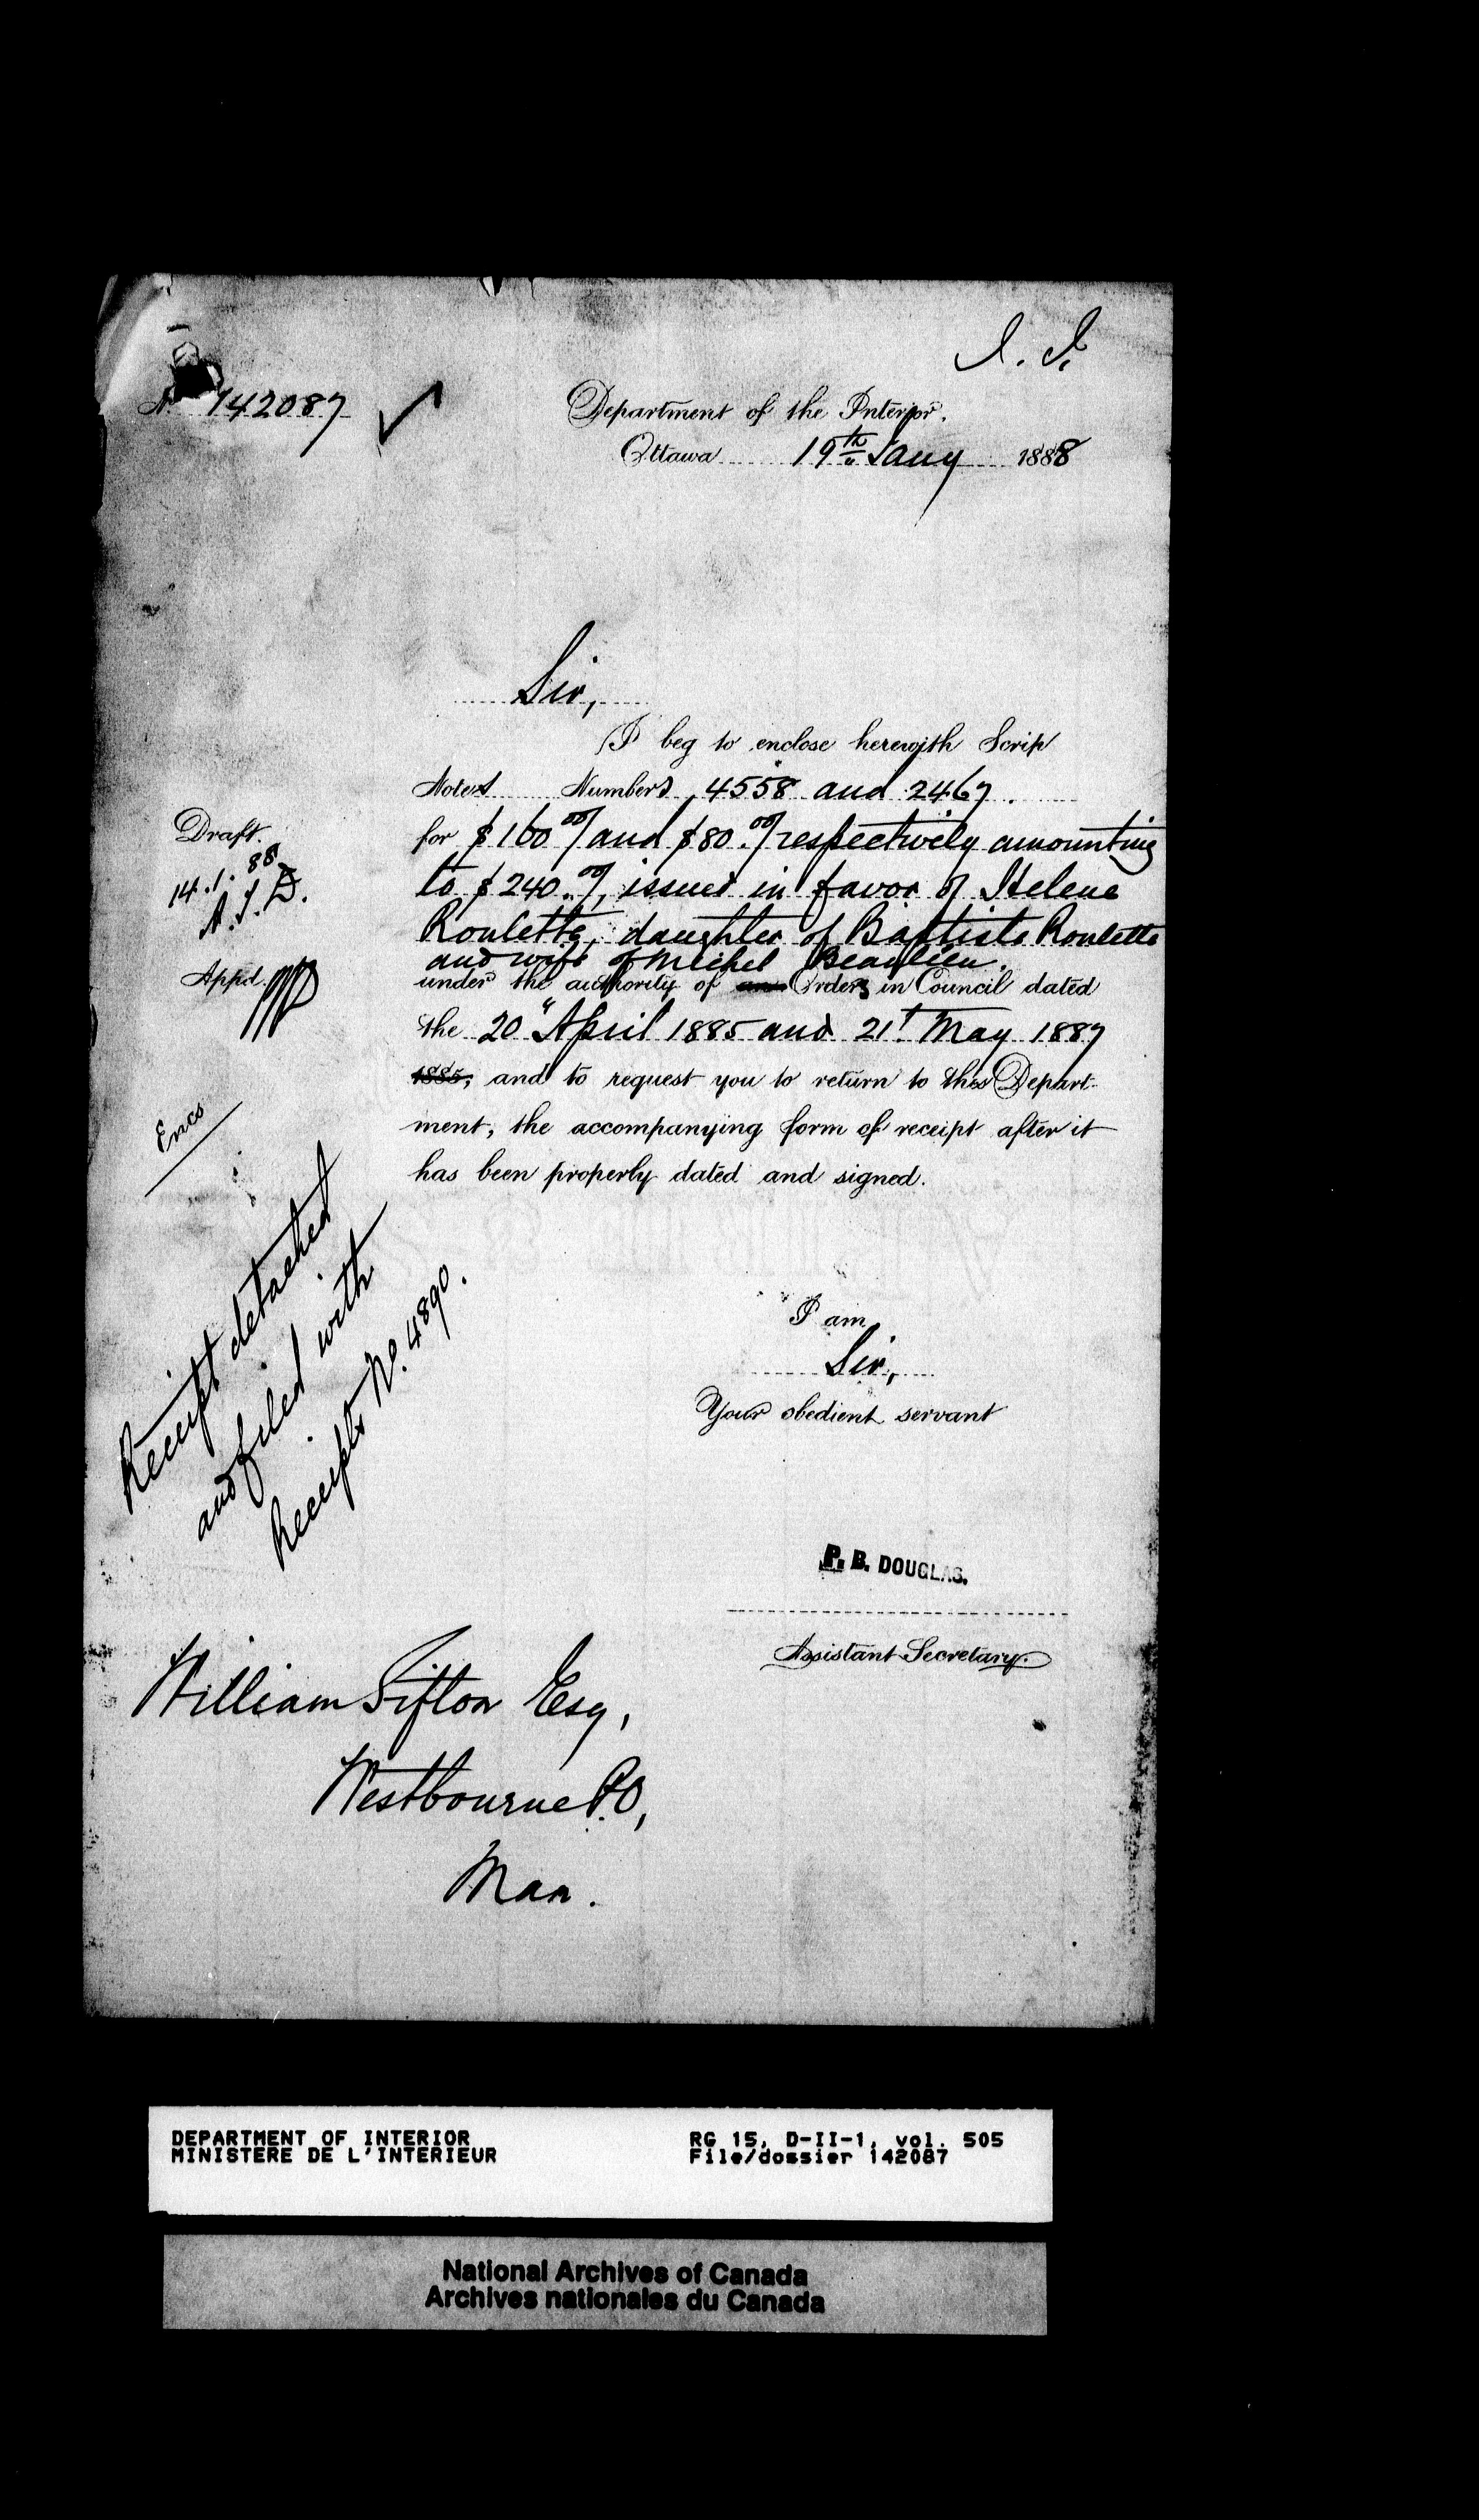 No 142087
Department of the Interior.
Ottawa 19th Jany 1888
Sir,
I beg to enclose herewith Scrip
Notes Numbers 4558 and 2467.
for $160.00/ and $80.00/ respectively amounting
to $240.00/, issued in favor of Helene
Roulette, daughter of Baptiste Roulette
and wife of Michel Beaulieu.
under the authority of an Orders in Council dated
the 20" April 1885 and 21st May 1887
1885, and to request you to return to this Depart-
ment, the accompanying form of receipt after it
has been properly dated and signed.
Draft.
14.1.88
Appd.
Encs
Receipt detached
and filed with
Receipts No. 4890.
I am,
Sir,
Your obedient servant
P. B. DOUGLAS.
Assistant Secretary.
William Sifton Esq,
Westbourne P.O,
Man.
DEPARTMENT OF INTERIOR
MINISTERE DE L'INTERIEUR
RG 15, D-II-1, vol. 505
File/dossier 142087
National Archives of Canada
Archives nationales du Canada